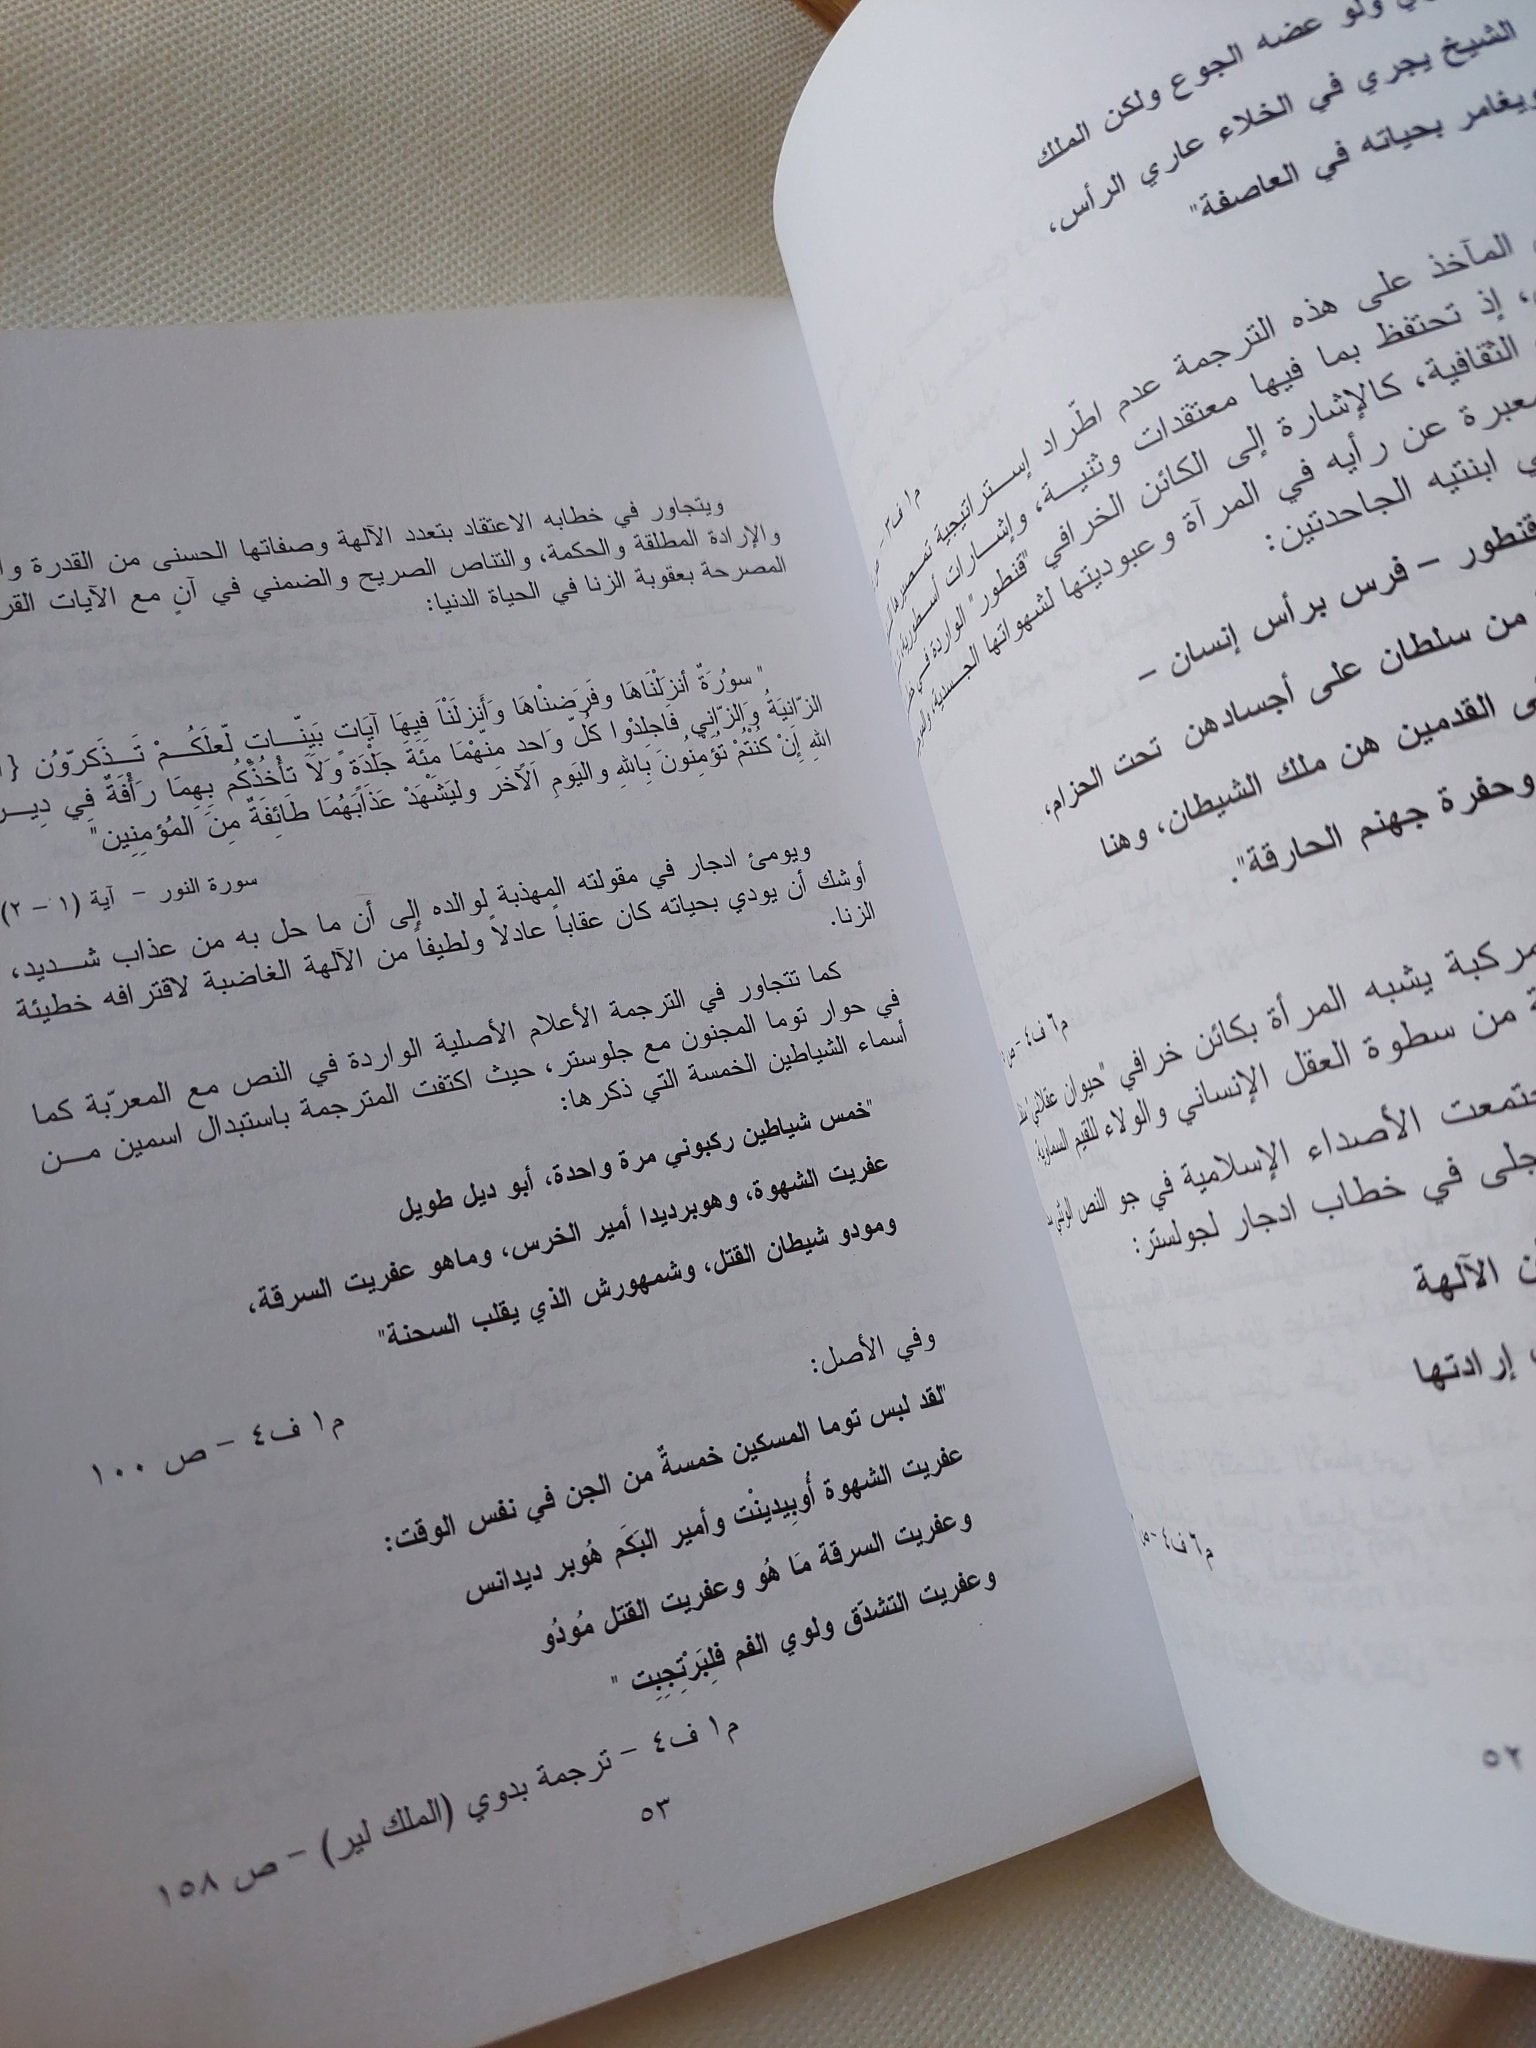 ولو عضه الجوع ولكن الملك
الشيخ يجري في الخلاء عاري الرأس،
ويغامر بحياته في العاصفة"
م١ ف٣ –
المآخذ على هذه الترجمة عدم اطّراد إستراتيجية
إذ تحتفظ بما فيها معتقدات وثنية، وإشارات أسطورية
الثقافية، كالإشارة إلى الكائن الخرافي "قنطور" الواردة في
معبرة عن رأيه في المرأة وعبوديتها لشهواتها الجسدية،
ابنتيه الجاحدتين:
قنطور – فرس برأس إنسان –
من سلطان على أجسادهن تحت الحزام،
القدمين هن ملك الشيطان، وهنا
وحفرة جهنم الحارقة".
م٦ ف٤ – ص
مركبة يشبه المرأة بكائن خرافي "حيوان عقلاني
من سطوة العقل الإنساني والولاء للقيم السماوية.
اجتمعت الأصداء الإسلامية في جو النص الوثني
في خطاب ادجار لجولستر:
الآلهة
إرادتها
م٦ ف٤ – ص
٥٢
ويتجاور في خطابه الاعتقاد بتعدد الآلهة وصفاتها الحسنى من القدرة
والإرادة المطلقة والحكمة، والتناص الصريح والضمني في آنٍ مع الآيات
المصرحة بعقوبة الزنا في الحياة الدنيا:
"سورُةٌ أنزلَنْاهَا وفَرَضنْاهَا وَأَنزلَنْاَ فِيهَا آيَاتٍ بَيَنّاتٍ لّعلَكُمْ تَذَكَروّنُ {
الزّانيَةُ وَالزّاني فَاجلِدْوا كُلّ وَاحدٍ منِهّمْاَ مِئَةَ جَلْدَةٍ وَلاَ تأْخُذْكُم بِهِمَا رَأْفَةٌ فِي دِيـن
اللهِ إِنْ كُنْتُمْ تُؤَمِنُونَ بِاللهِ واليَومِ الآخَر وليَشْهَدْ عَذَابَهُمَا طَائِفَةٌ مِنَ المُؤمِنِين"
سورة النور – آية (١ – ٢)
ويومئ ادجار في مقولته المهذبة لوالده إلى أن ما حل به من عذاب شديد،
أوشك أن يودي بحياته كان عقاباً عادلاً ولطيفاً من الآلهة الغاضبة لاقترافه خطيئة
الزنا.
كما تتجاور في الترجمة الأعلام الأصلية الواردة في النص مع المعرّبة كما
في حوار توما المجنون مع جلوستر، حيث اكتفت المترجمة باستبدال اسمين من
أسماء الشياطين الخمسة التي ذكرها:
"خمس شياطين ركبوني مرة واحدة، أبو ديل طويل
عفريت الشهوة، وهوبرديدا أمير الخرس، وماهو عفريت السرقة،
ومودو شيطان القتل، وشمهورش الذي يقلب السحنة"
م١ ف٤ – ص ١٠٠
وفي الأصل:
"لقد لبس توما المسكين خمسةٌ من الجن في نفس الوقت:
عفريت الشهوة أُوبِيدينْت وأمير البَكَم هُوبر ديدانس
وعفريت السرقة مَا هُو وعفريت القتل مُودُو
وعفريت التشدّق ولوي الفم فلِبَرْتِجِبِت "
م١ ف٤ – ترجمة بدوي (الملك لير) – ص ١٥٨
٥٣